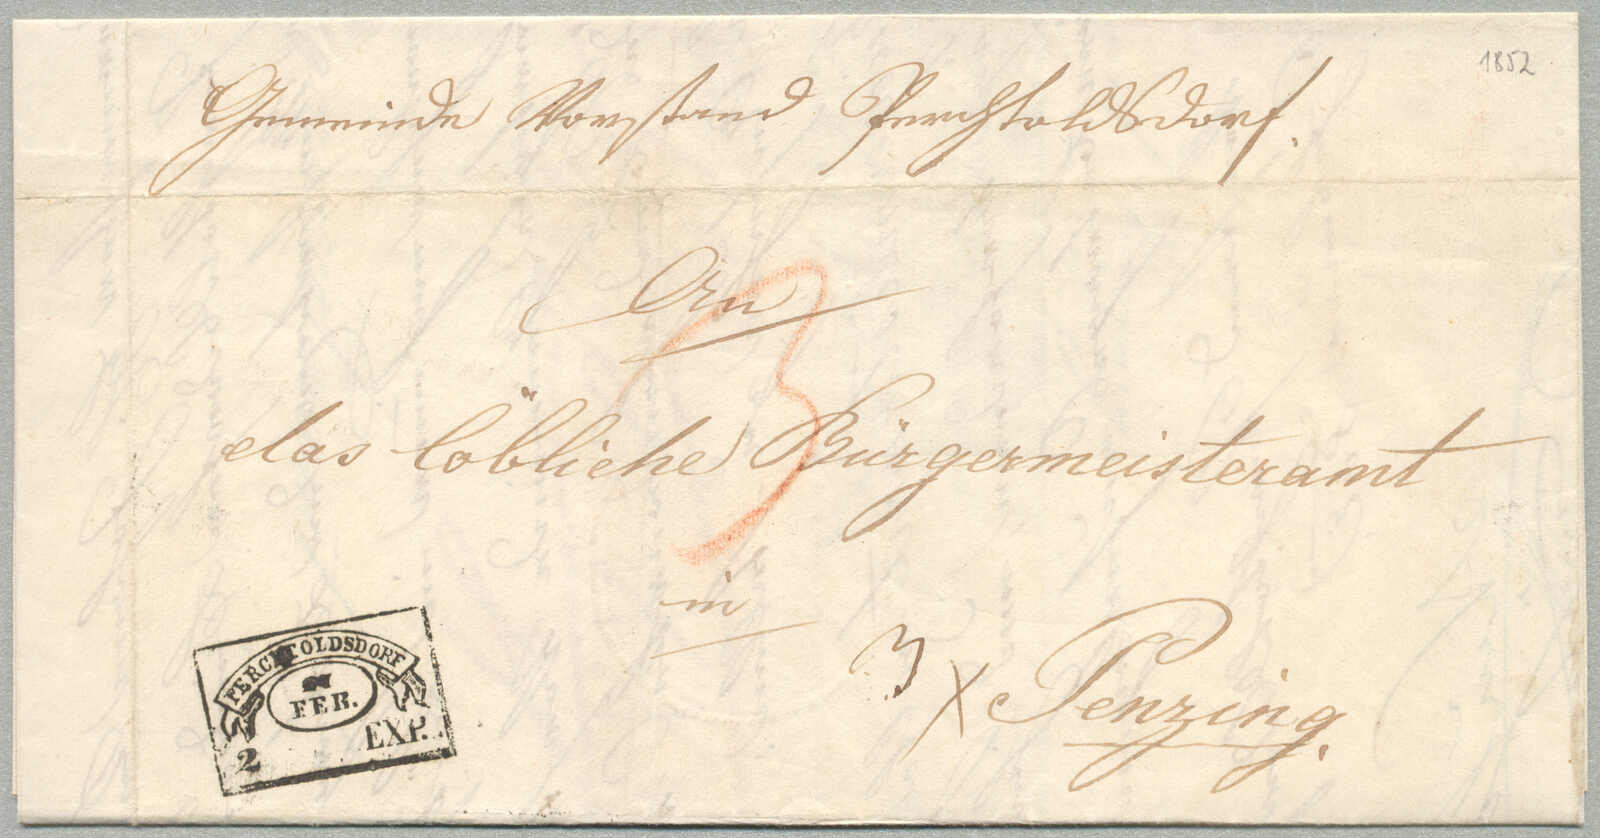 1852
Gemeinde Vorstand Perchtoldsdorf.
An
3
das löbliche Bürgermeisteramt
in
3 x Penzing.
PERCHTOLDSDORF
FEB.
2 EXP.